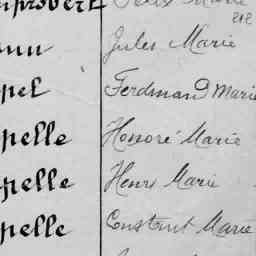 Marie
Jules Marie
pel Ferdinand Marie
pelle Honoré Marie
pelle Henri Marie
pelle Constant Marie